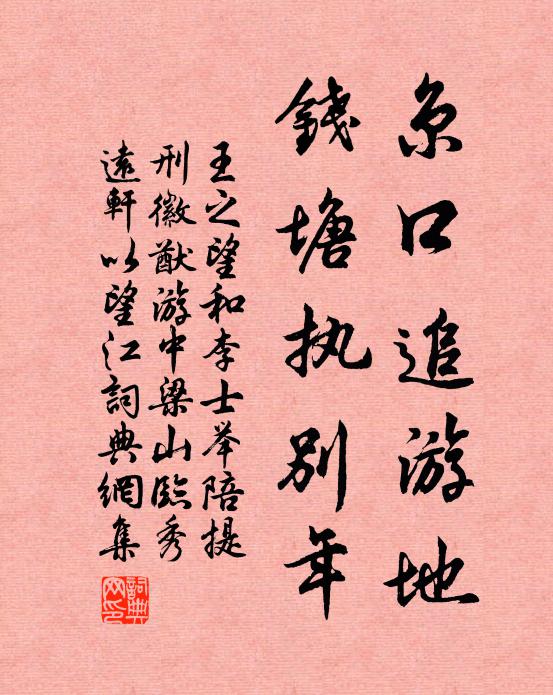 京口追游地
錢塘执别年
王之望和李士举陪提
刑徽猷游中梁山臨秀
遠軒以望江詞典網集
詞典網印